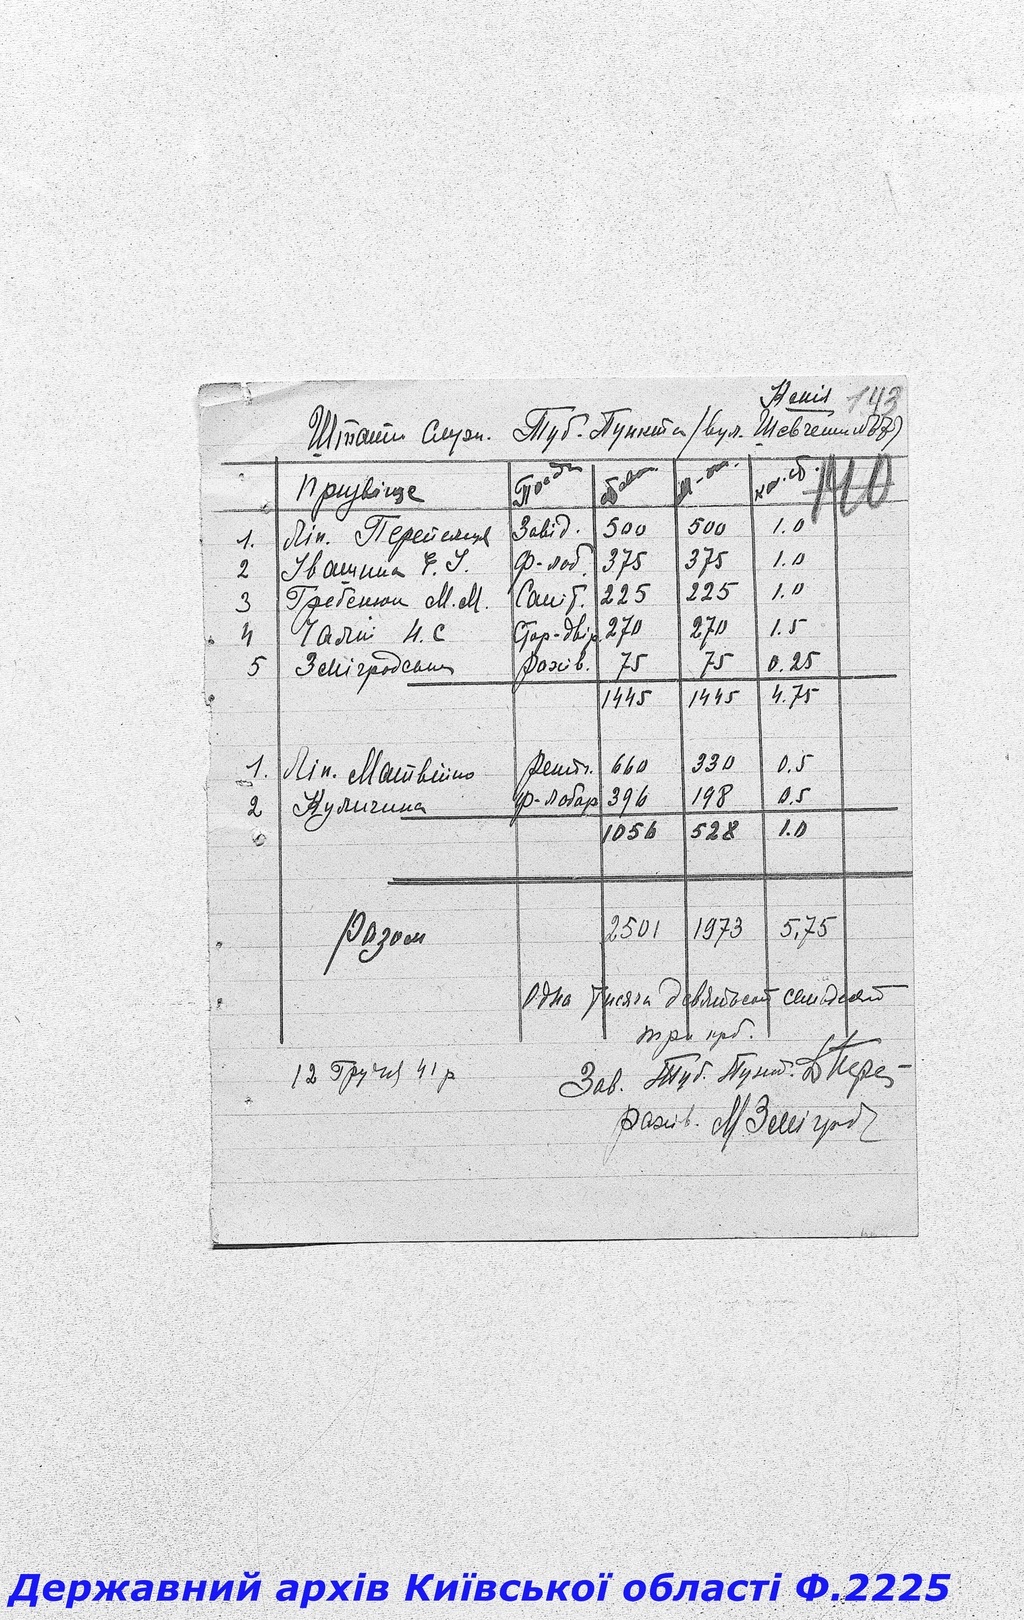 Копія 143
Штати Служ. Туб. Пункта (вул. Шевченка №
140
Прізвіще Посада
1. Лік. Перепелиця Завід. 500 500 1.0
2 Іващина Є. І. Ф-лаб. 375 375 1.0
3 Гребенюк М.М. Саніт. 225 225 1.0
4 Чалий Н.С Стор-двір 270 270 1.5
5 Змігродська Рахів. 75 75 0.25
1445 1445 4.75
1. Лік. Матвійко Рентг. 660 330 0.5
2 Куличина Ф-лабор 396 198 0.5
1056 528 1.0
Разом 2501 1973 5,75
Одна тисяча девятьсот семьдесят
три крб.
12 Грудня 41 р
Зав. Туб. Пункт. Пере
Рахів. М Змігрод
Державний архів Київської області Ф.2225